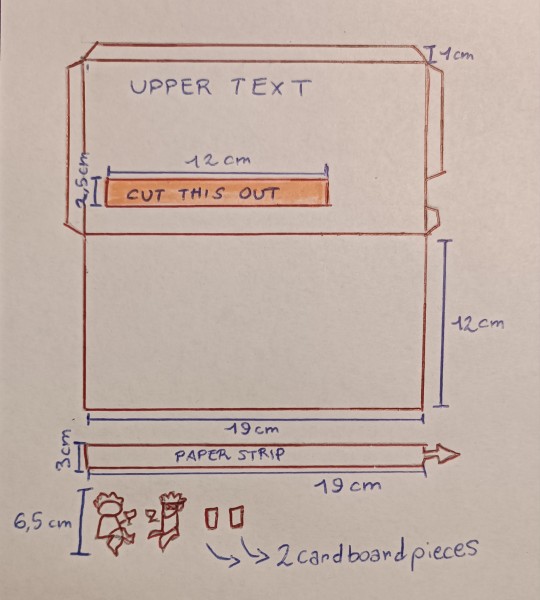 1cm
UPPER TEXT
12cm
2,5cm
CUT THIS OUT
12cm
19cm
3cm
PAPER STRIP
19cm
6,5cm
2 cardboard pieces